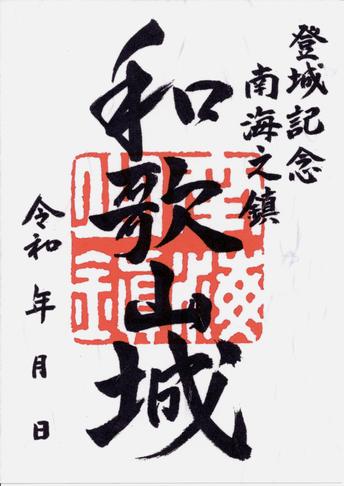 登城記念
南海之鎮
和歌山城
令和 年 月 日
南海之鎮